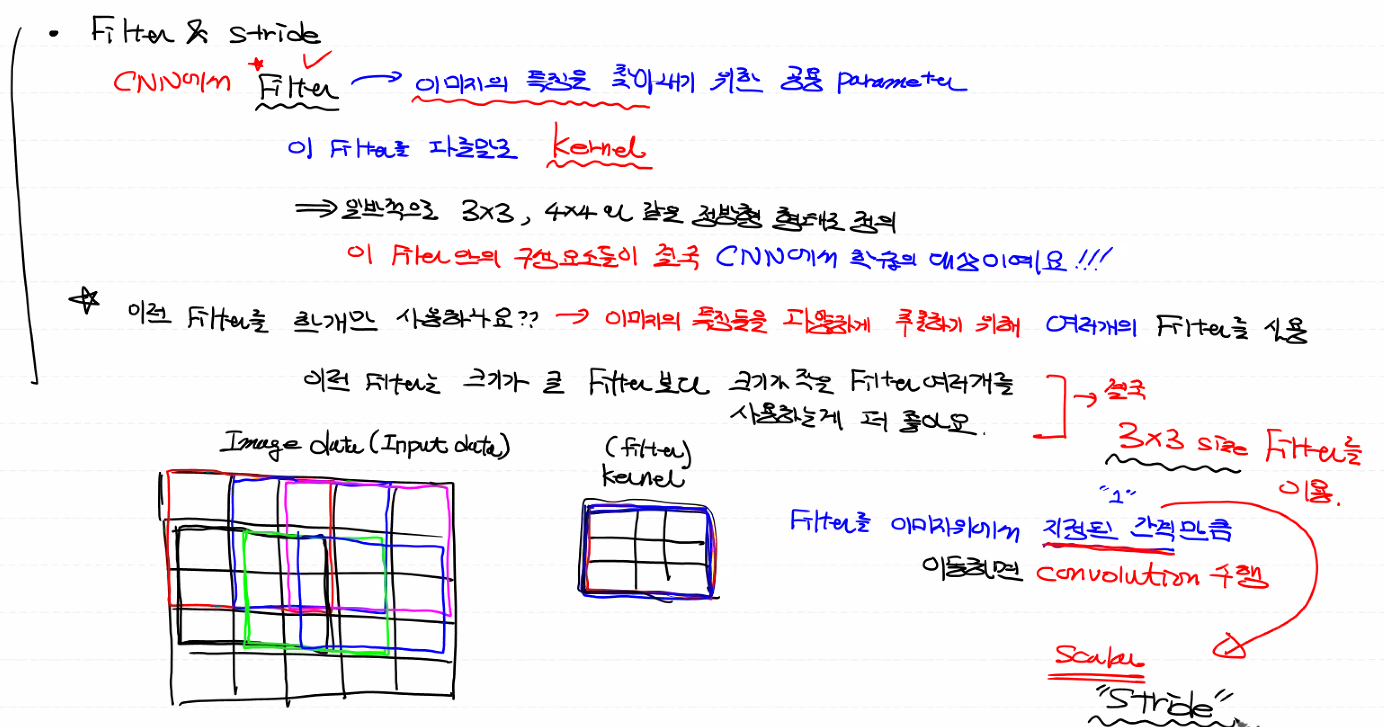 • Filter & stride
CNN에서 Filter → 이미지의 특징을 찾아내기 위한 공용 parameter
이 Filter를 다른말로 kernel
⇒ 일반적으로 3×3, 4×4와 같은 정방형 형태로 정의
이 Filter안의 구성요소들이 결국 CNN에서 학습의 대상이예요!!!
☆ 이런 Filter를 한개만 사용하나요?? → 이미지의 특징들을 다양하게 추출하기 위해 여러개의 Filter를 사용
이런 Filter는 크기가 큰 Filter보다 크기가 작은 Filter여러개를
사용하는게 더 좋아요.
→ 결국
3×3 size Filter를
이용.
Image data (Input data)
(filter)
kernel
"1"
Filter를 이미지위에서 지정된 간격만큼
이동하면 convolution 수행
Scalar
"Stride"